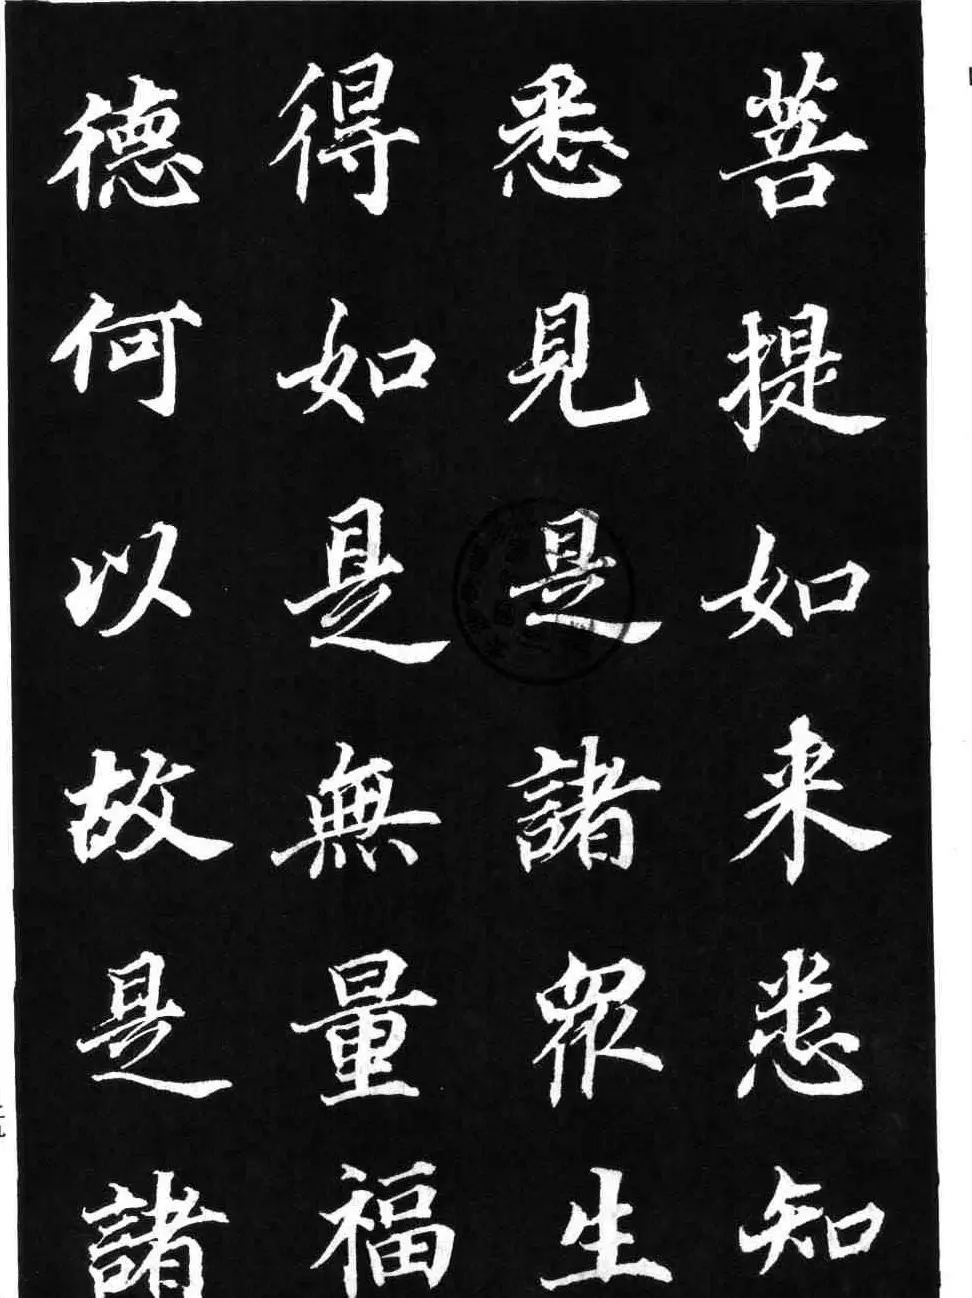 菩提如来悉知
悉見是諸眾生
得如是無量福
德何以故是諸